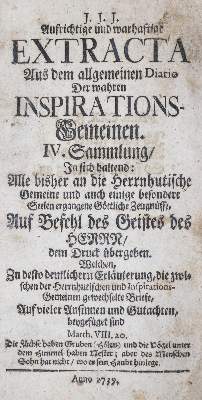 J. J. J.
Aufrichtige und warhafftige
EXTRACTA
Aus dem allgemeinen Diario
Der wahren
INSPIRATIONS-
Gemeinen.
IV. Sammlung/
In sich haltend:
Alle bisher an die Herrnhutische
Gemeine und auch einige besondere
Seelen ergangene Göttliche Zeugnüsse,
Auf Befehl des Geistes des
HERRN/
dem Druck übergeben.
Welchen,
Zu desto deutlichern Erläuterung, die zwi-
schen der Herrnhutischen und Inspirations-
Gemeinen gewechselte Briefe,
Auf vieler Ansinnen und Gutachten,
beygefüget sind
Matth. VIII, 20.
Die Füchse haben Gruben und die Vögel unter
dem Himmel haben Nester; aber des Menschen
Sohn hat nicht / wo er sein Haubt hinlege.
Anno 1739.